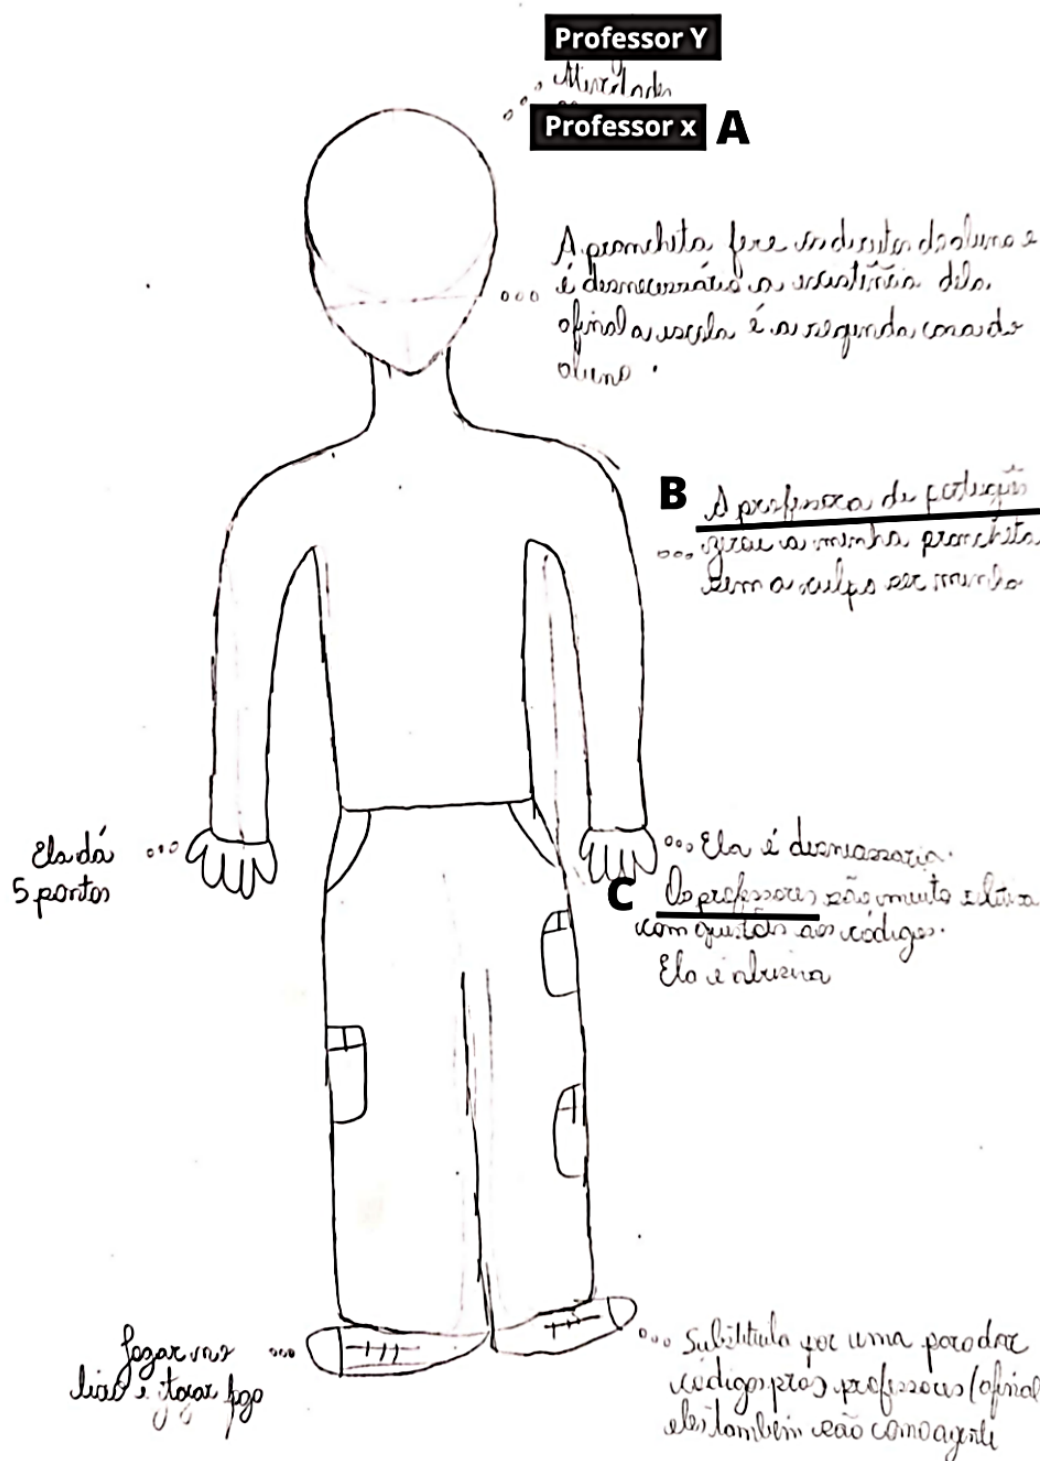 Professor Y
Professor x A
A prancheta fere os direitos do aluno e
é desnecessário a existência dela
afinal a escola é a segunda casa do
aluno.
B A professora de português
zerou a minha prancheta
sem a culpa ser minha
Ela dá
5 pontos
Ela é desnessaria.
C Os professores são muito
com questão aos códigos.
Ela é abusiva
Jogar no
lixo e tacar fogo
Substituila por uma para dar
códigos pros professores (afinal
eles também são como agente